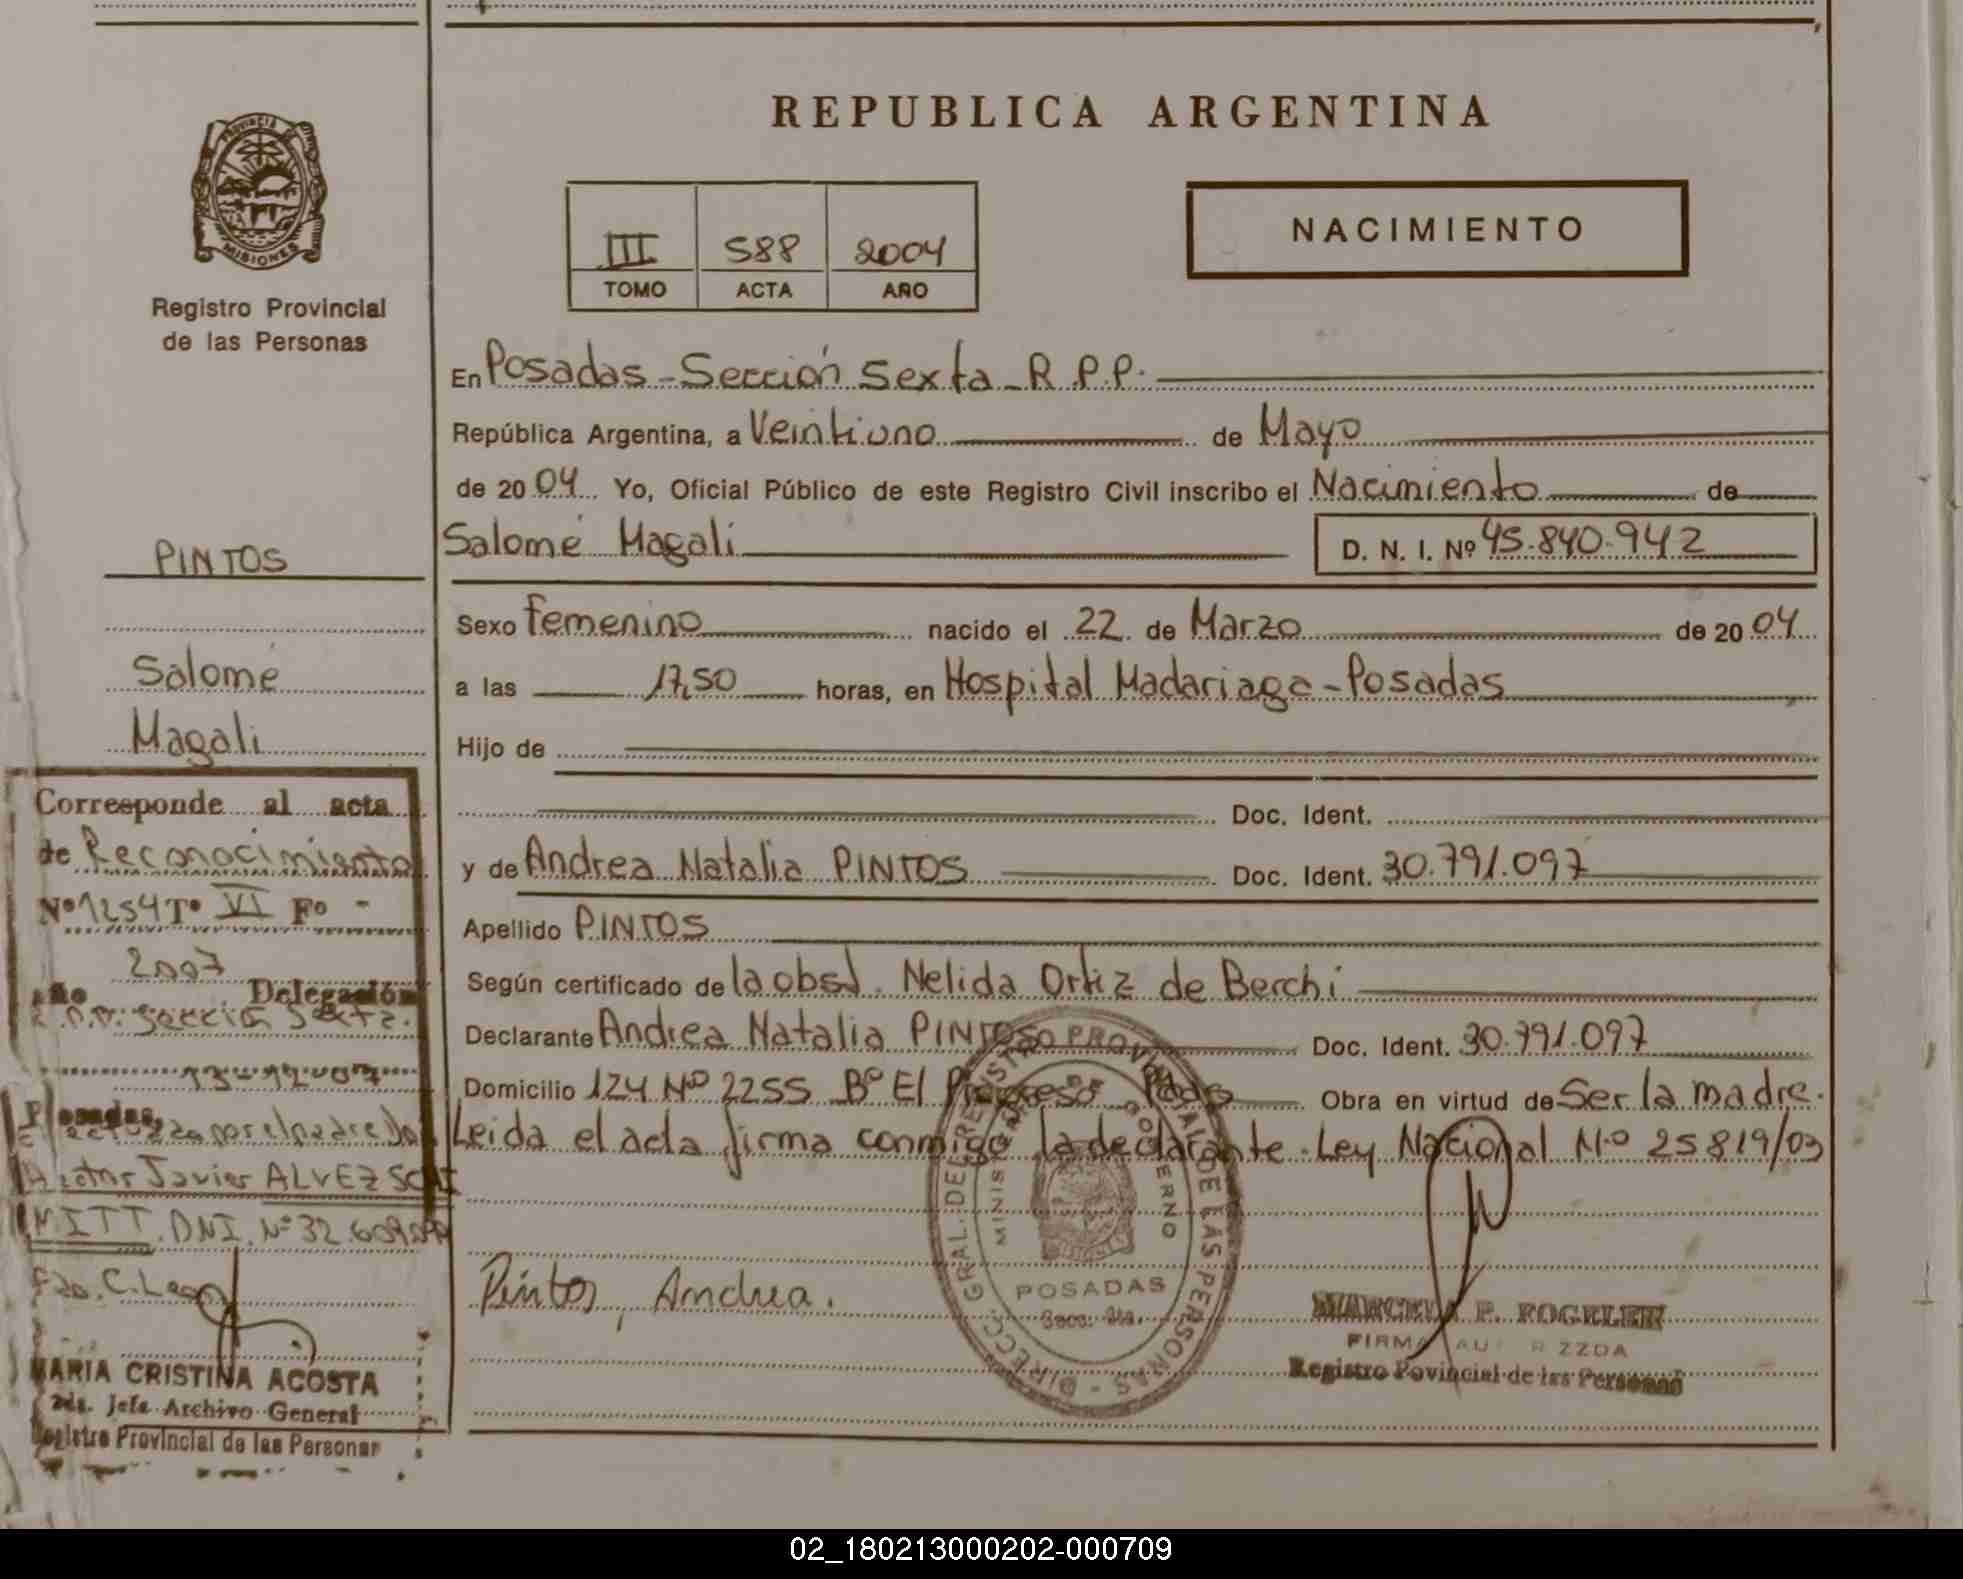 REPUBLICA ARGENTINA
PROVINCIA DE
MISIONES
Registro Provincial
de las Personas
NACIMIENTO
III 588 2004
TOMO ACTA AÑO
En Posadas - Sección Sexta - R.P.P.
República Argentina, a Veintiuno de Mayo
de 2004 Yo, Oficial Público de este Registro Civil inscribo el Nacimiento de
Salomé Magali D. N. I. Nº 45.840.942
PINTOS
Salomé
Magali
Sexo Femenino nacido el 22 de Marzo de 2004
a las 17,50 horas, en Hospital Madariaga - Posadas
Hijo de
Doc. Ident.
y de Andrea Natalia PINTOS Doc. Ident. 30.791.097
Apellido PINTOS
Según certificado de la obst. Nelida Ortiz de Berchi
Declarante Andrea Natalia PINTOS Doc. Ident. 30.791.097
Domicilio 124 Nº 2255 Bº El Progreso Pdas Obra en virtud de Ser la madre.
Leida el acta firma conmigo la declarante. Ley Nacional Nº 25819/03
Corresponde al acta
de Reconocimiento
Nº 1254 Tº VI Fº -
Año 2007 Delegación
Sección Sexta.
13-12-07
Posadas,
por el padre Don
Javier ALVEZ SCH
MITT. DNI. Nº 32.609
C. Leon
MARIA CRISTINA ACOSTA
2da. Jefa Archivo General
Registro Provincial de las Personas
Pintos, Andrea.
DIRECC. GRAL. DEL REGISTRO PROVINCIAL DE LAS PERSONAS
GOBIERNO
POSADAS
Secc. 6ta.
MARCELA F. FOGELER
FIRMA AUTORIZZDA
Registro Povincial de las Personas
02_180213000202-000709